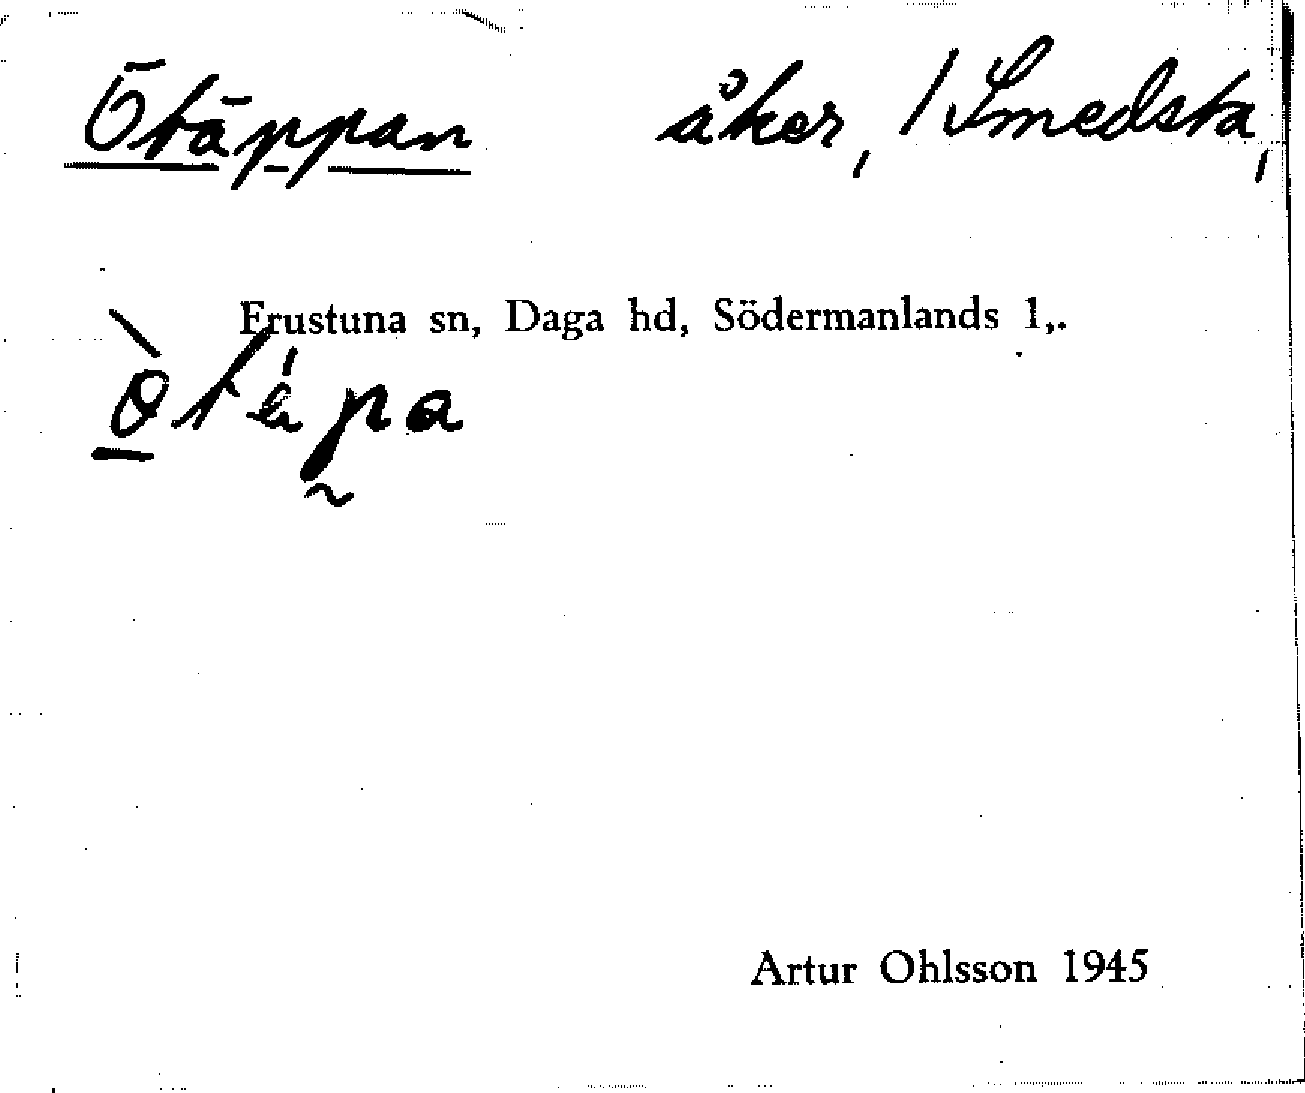 Ötäppan åker, / Smedsta,
Frustuna sn, Daga hd, Södermanlands l,.
Artur Ohlsson 1945